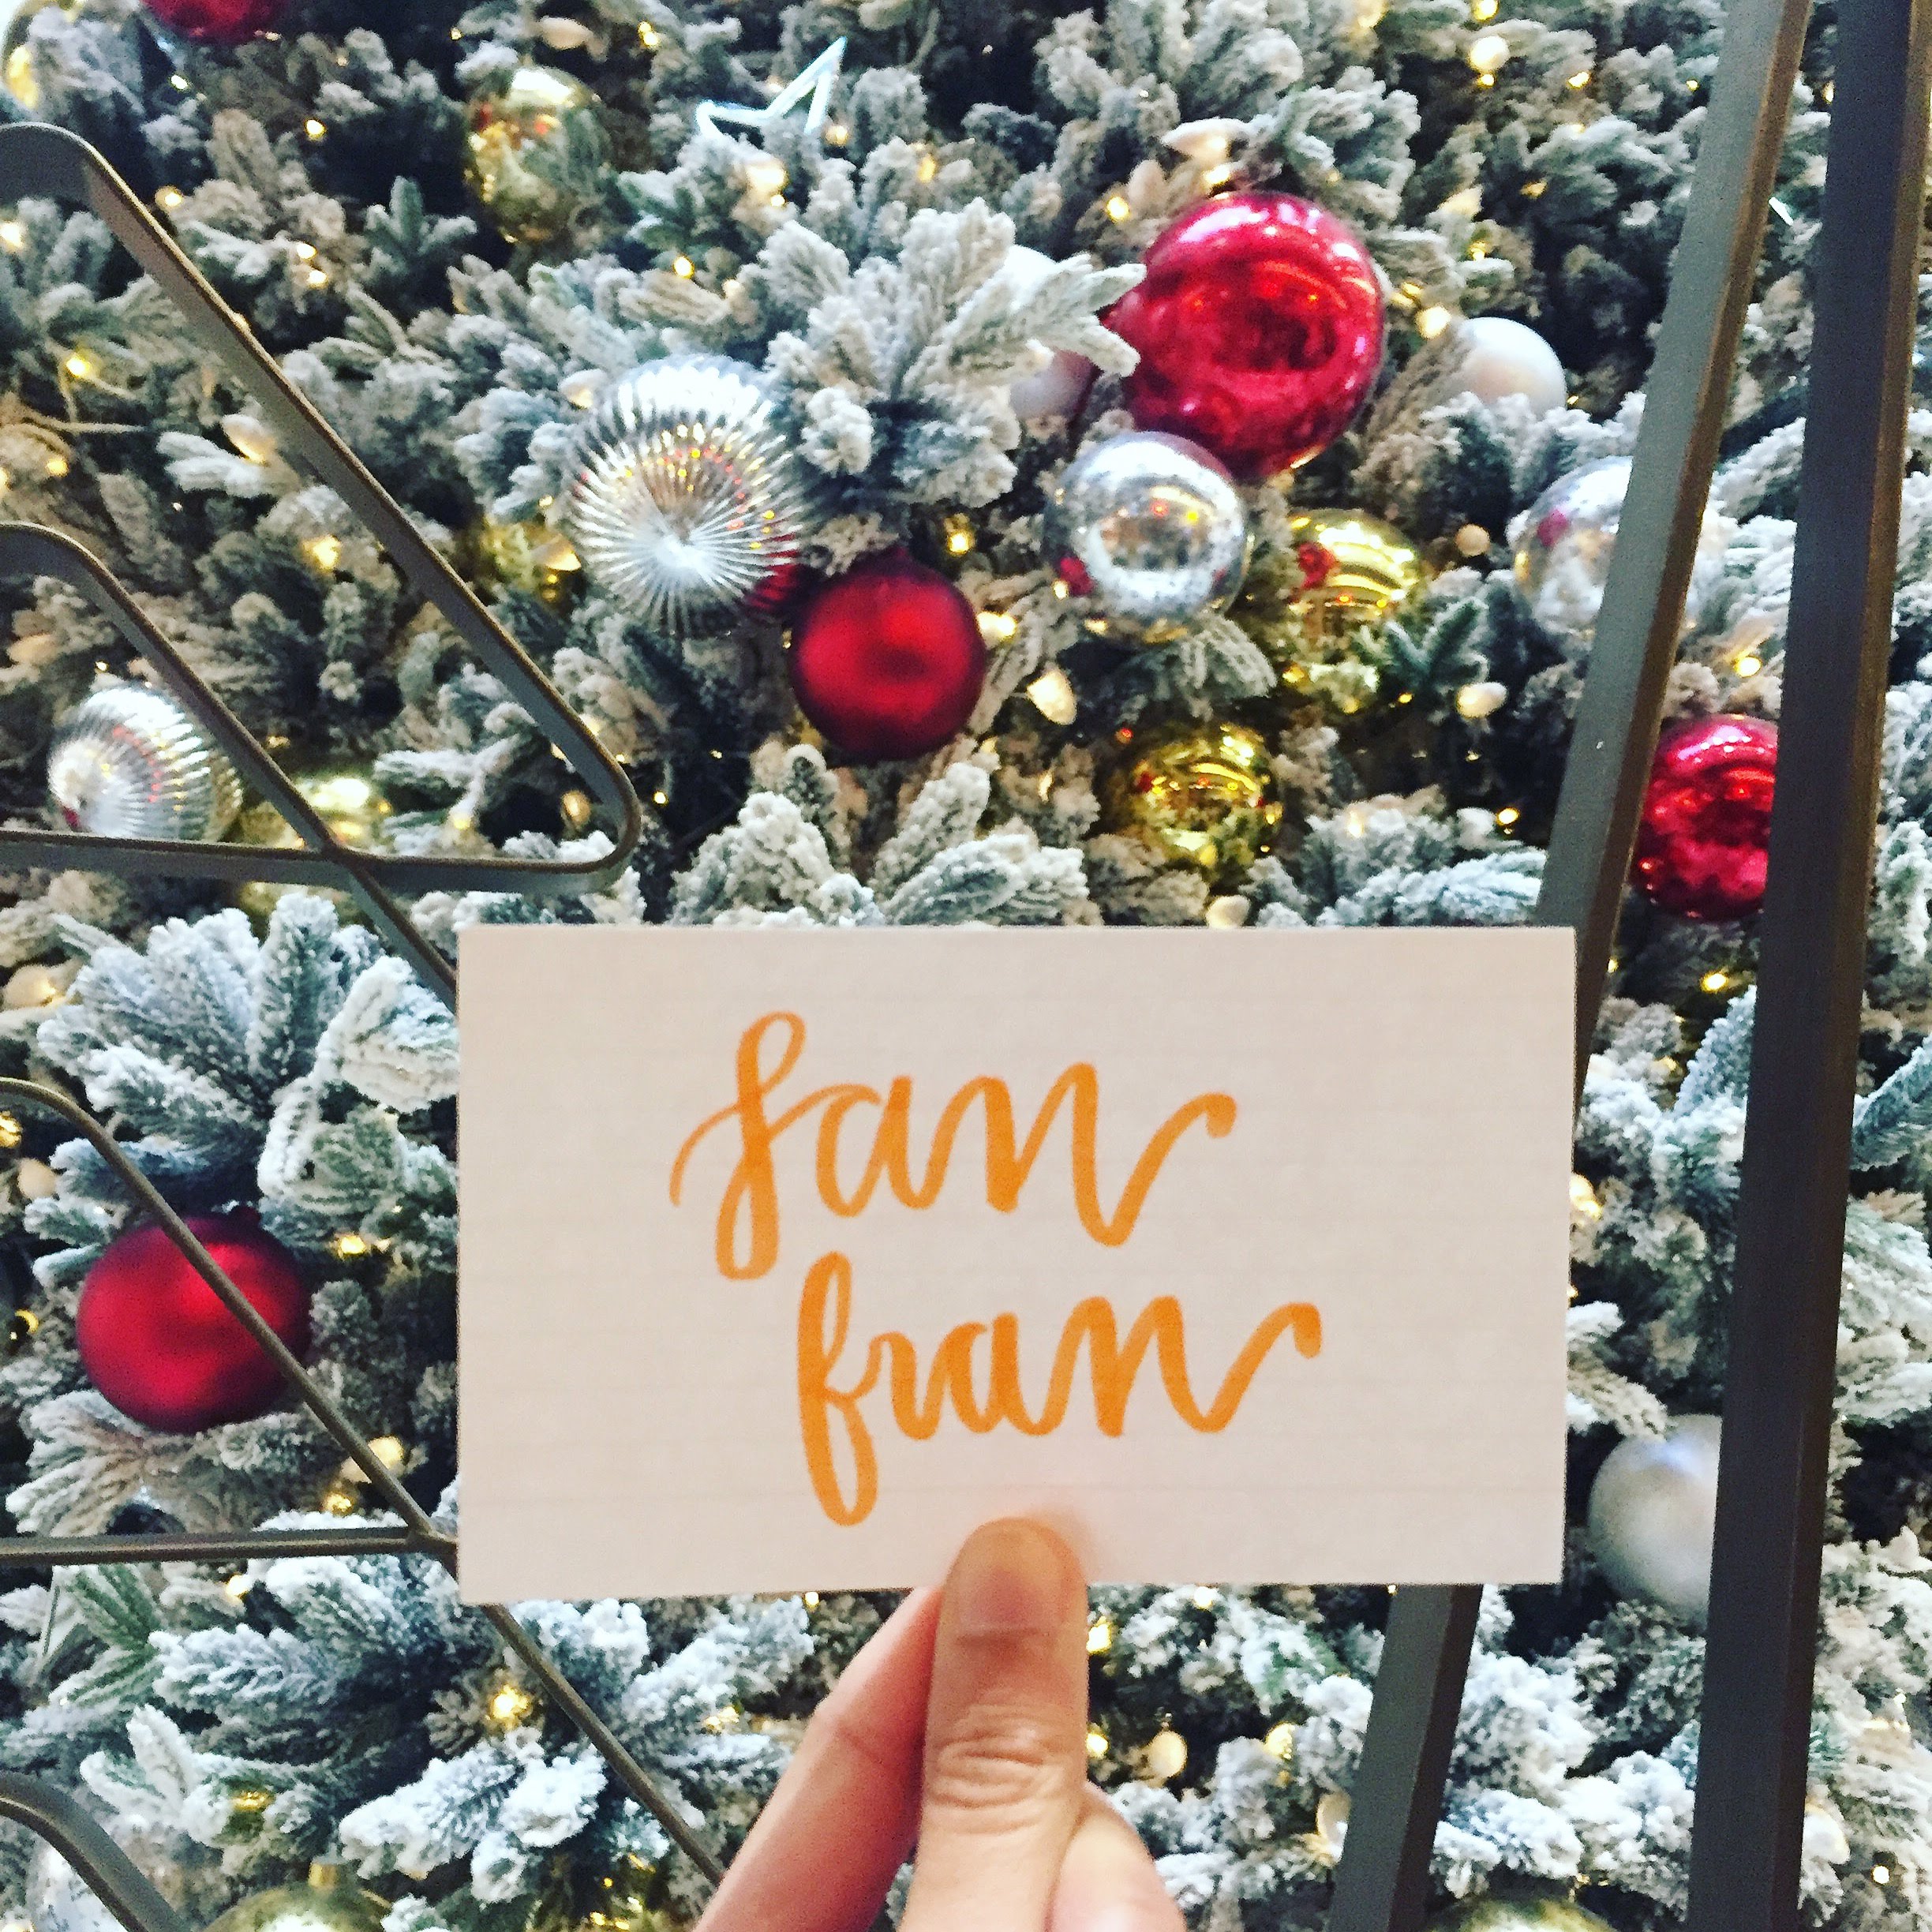 san
fran